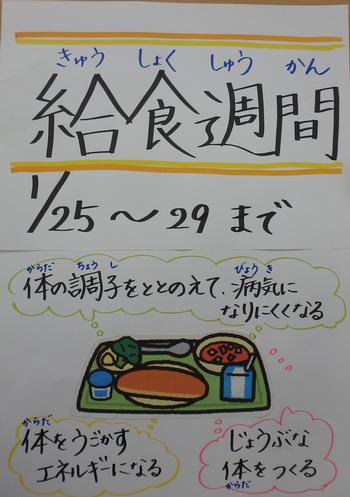 きゅう しょく しゅう かん
給食週間
1/25〜29まで
からだ ちょうし びょうき
体の調子をととのえて、病気に
なりにくくなる
からだ
体をうごかす
エネルギーになる
じょうぶな
体をつくる
からだ